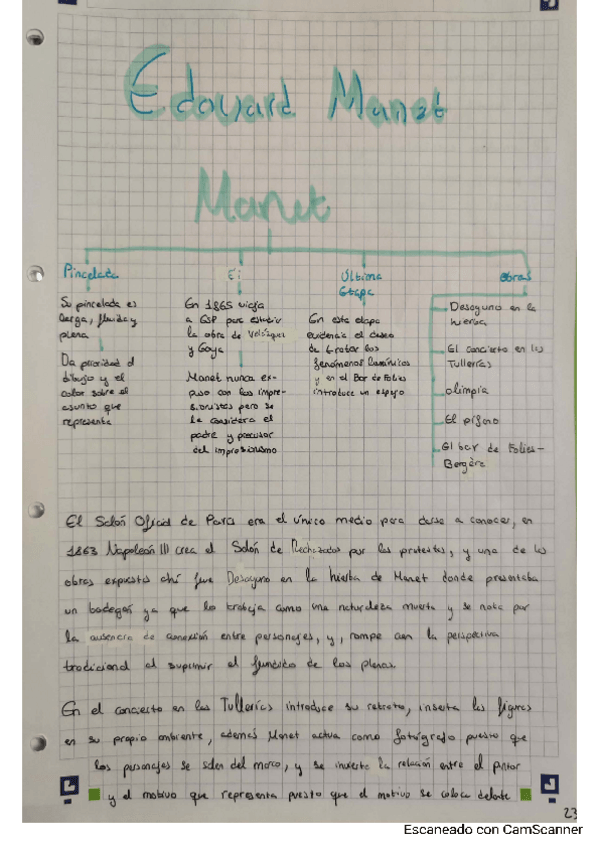 Edouard Manet
Manet
Pincelada
Su pincelada es
larga, fluida y
plena
Da prioridad al
dibujo y el
color sobre el
asunto que
representa
El
En 1865 viaja
a ESP para estudiar
la obra de Velázquez
y Goya
Manet nunca ex-
puso con los impre-
sionistas pero se
le considera el
padre y precursor
del impresionismo
Última
Etapa
En esta etapa
evidencia el deseo
de tratar los
fenómenos lumínicos
y en el Bar de Folies
introduce un espejo
Obras
Desayuno en la
hierba
El concierto en las
Tullerías
Olimpia
El pífano
El bar de Folies-
Bergère
El Salón Oficial de París era el único medio para darse a conocer, en
1863 Napoleón III crea el Salón de Rechazados por las protestas, y una de las
obras expuestas ahí fue Desayuno en la hierba de Manet donde presentaba
un bodegón ya que lo trabaja como una naturaleza muerta y se nota por
la ausencia de conexión entre personajes, y, rompe con la perspectiva
tradicional al suprimir el fundido de los planos.
En el concierto en las Tullerías introduce su retrato, inserta las figuras
en su propio ambiente, además Manet actua como fotógrafo puesto que
los personajes se salen del marco, y se invierte la relación entre el pintor
y el motivo que representa puesto que el motivo se coloca delante
23
Escaneado con CamScanner